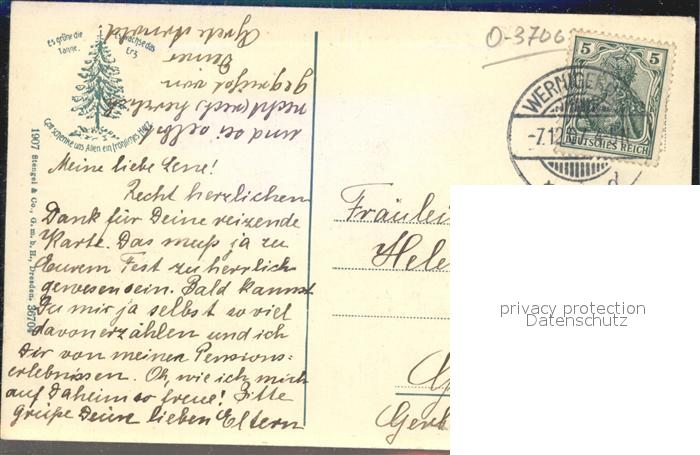 Es grüne die
Tanne,
Es wachse das
Erz
Gott schenke uns Allen ein fröhliches HERZ
1907 Stengel & Co., G. m. b. H., Dresden. 36704
Meine liebe Lene!
Recht herzlichen
Dank für Deine reizende
Karte. Das muß ja zu
Eurem Fest zu herrlich
gewesen sein. Bald kannst
Du mir ja selbst so viel
davon erzählen und ich
Dir von meinen Pensions-
erlebnissen. Oh, wie ich mich
auf Daheim so freue! Bitte
grüße Deine lieben Eltern
und sei selbst
recht (recht) herzlich
gegrüßt von
Deiner
O-3706
5 5
DEUTSCHES REICH
WERNIGE
-7.12
Fräulei
Hele
Gerb
privacy protection
Datenschutz